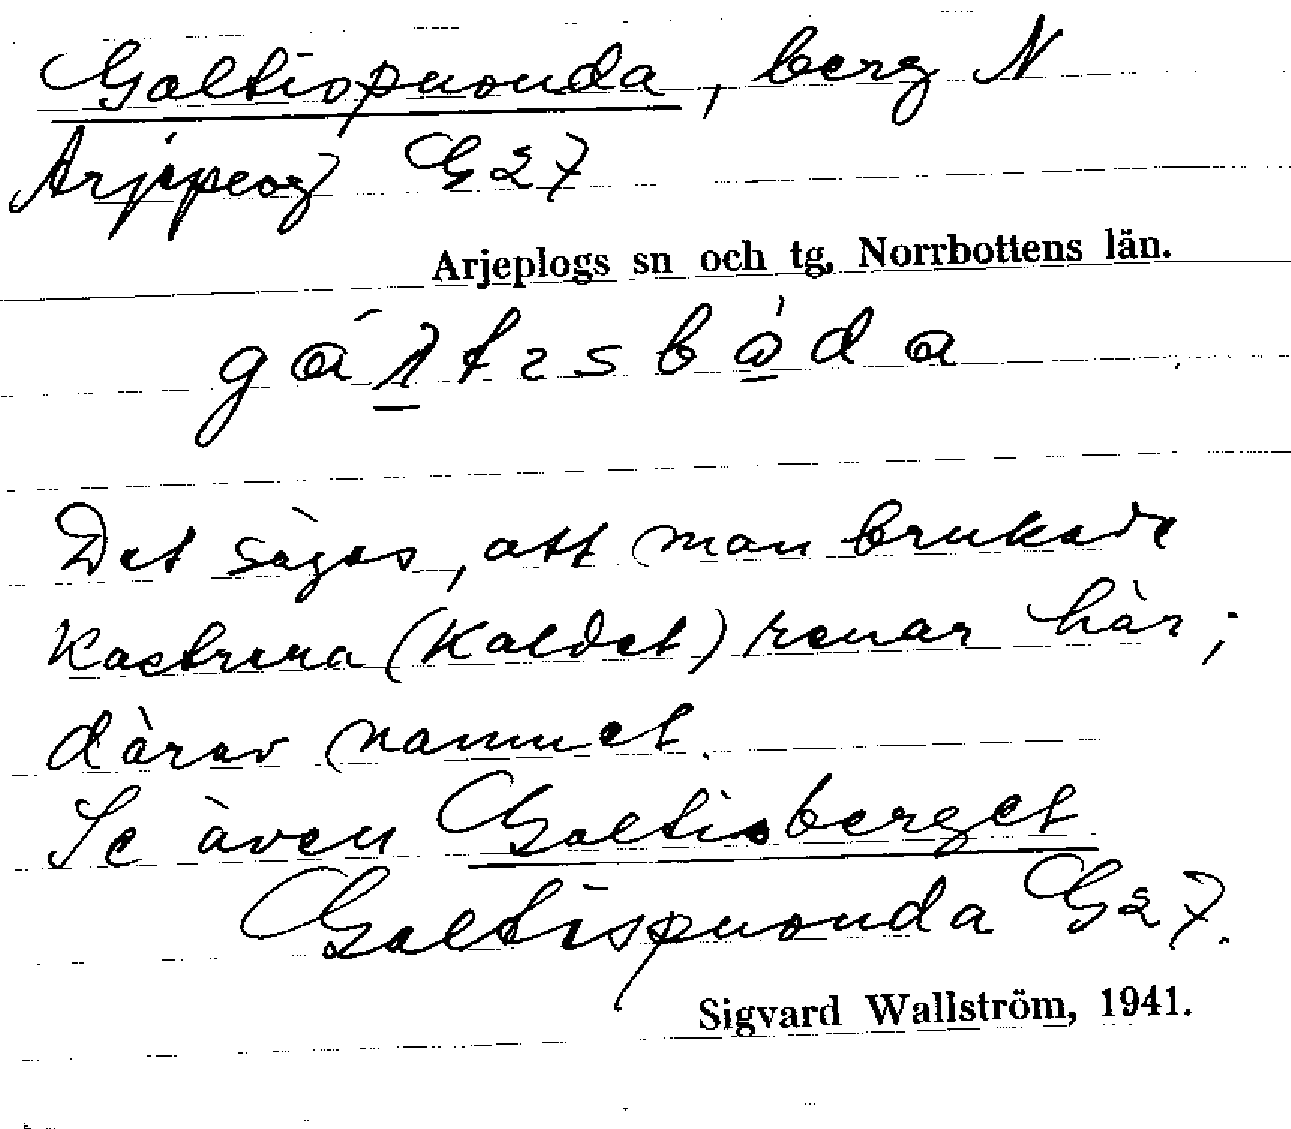 Galtispuouda, berg N
Arjepeog G 27
Arjeplogs sn och tg, Norrbottens län.
Det säges, att man brukade
kastrera (kaldet) renar här;
därav namnet.
Se även Galtisberget
Galtispuouda G 27.
Sigvard Wallström, 1941.